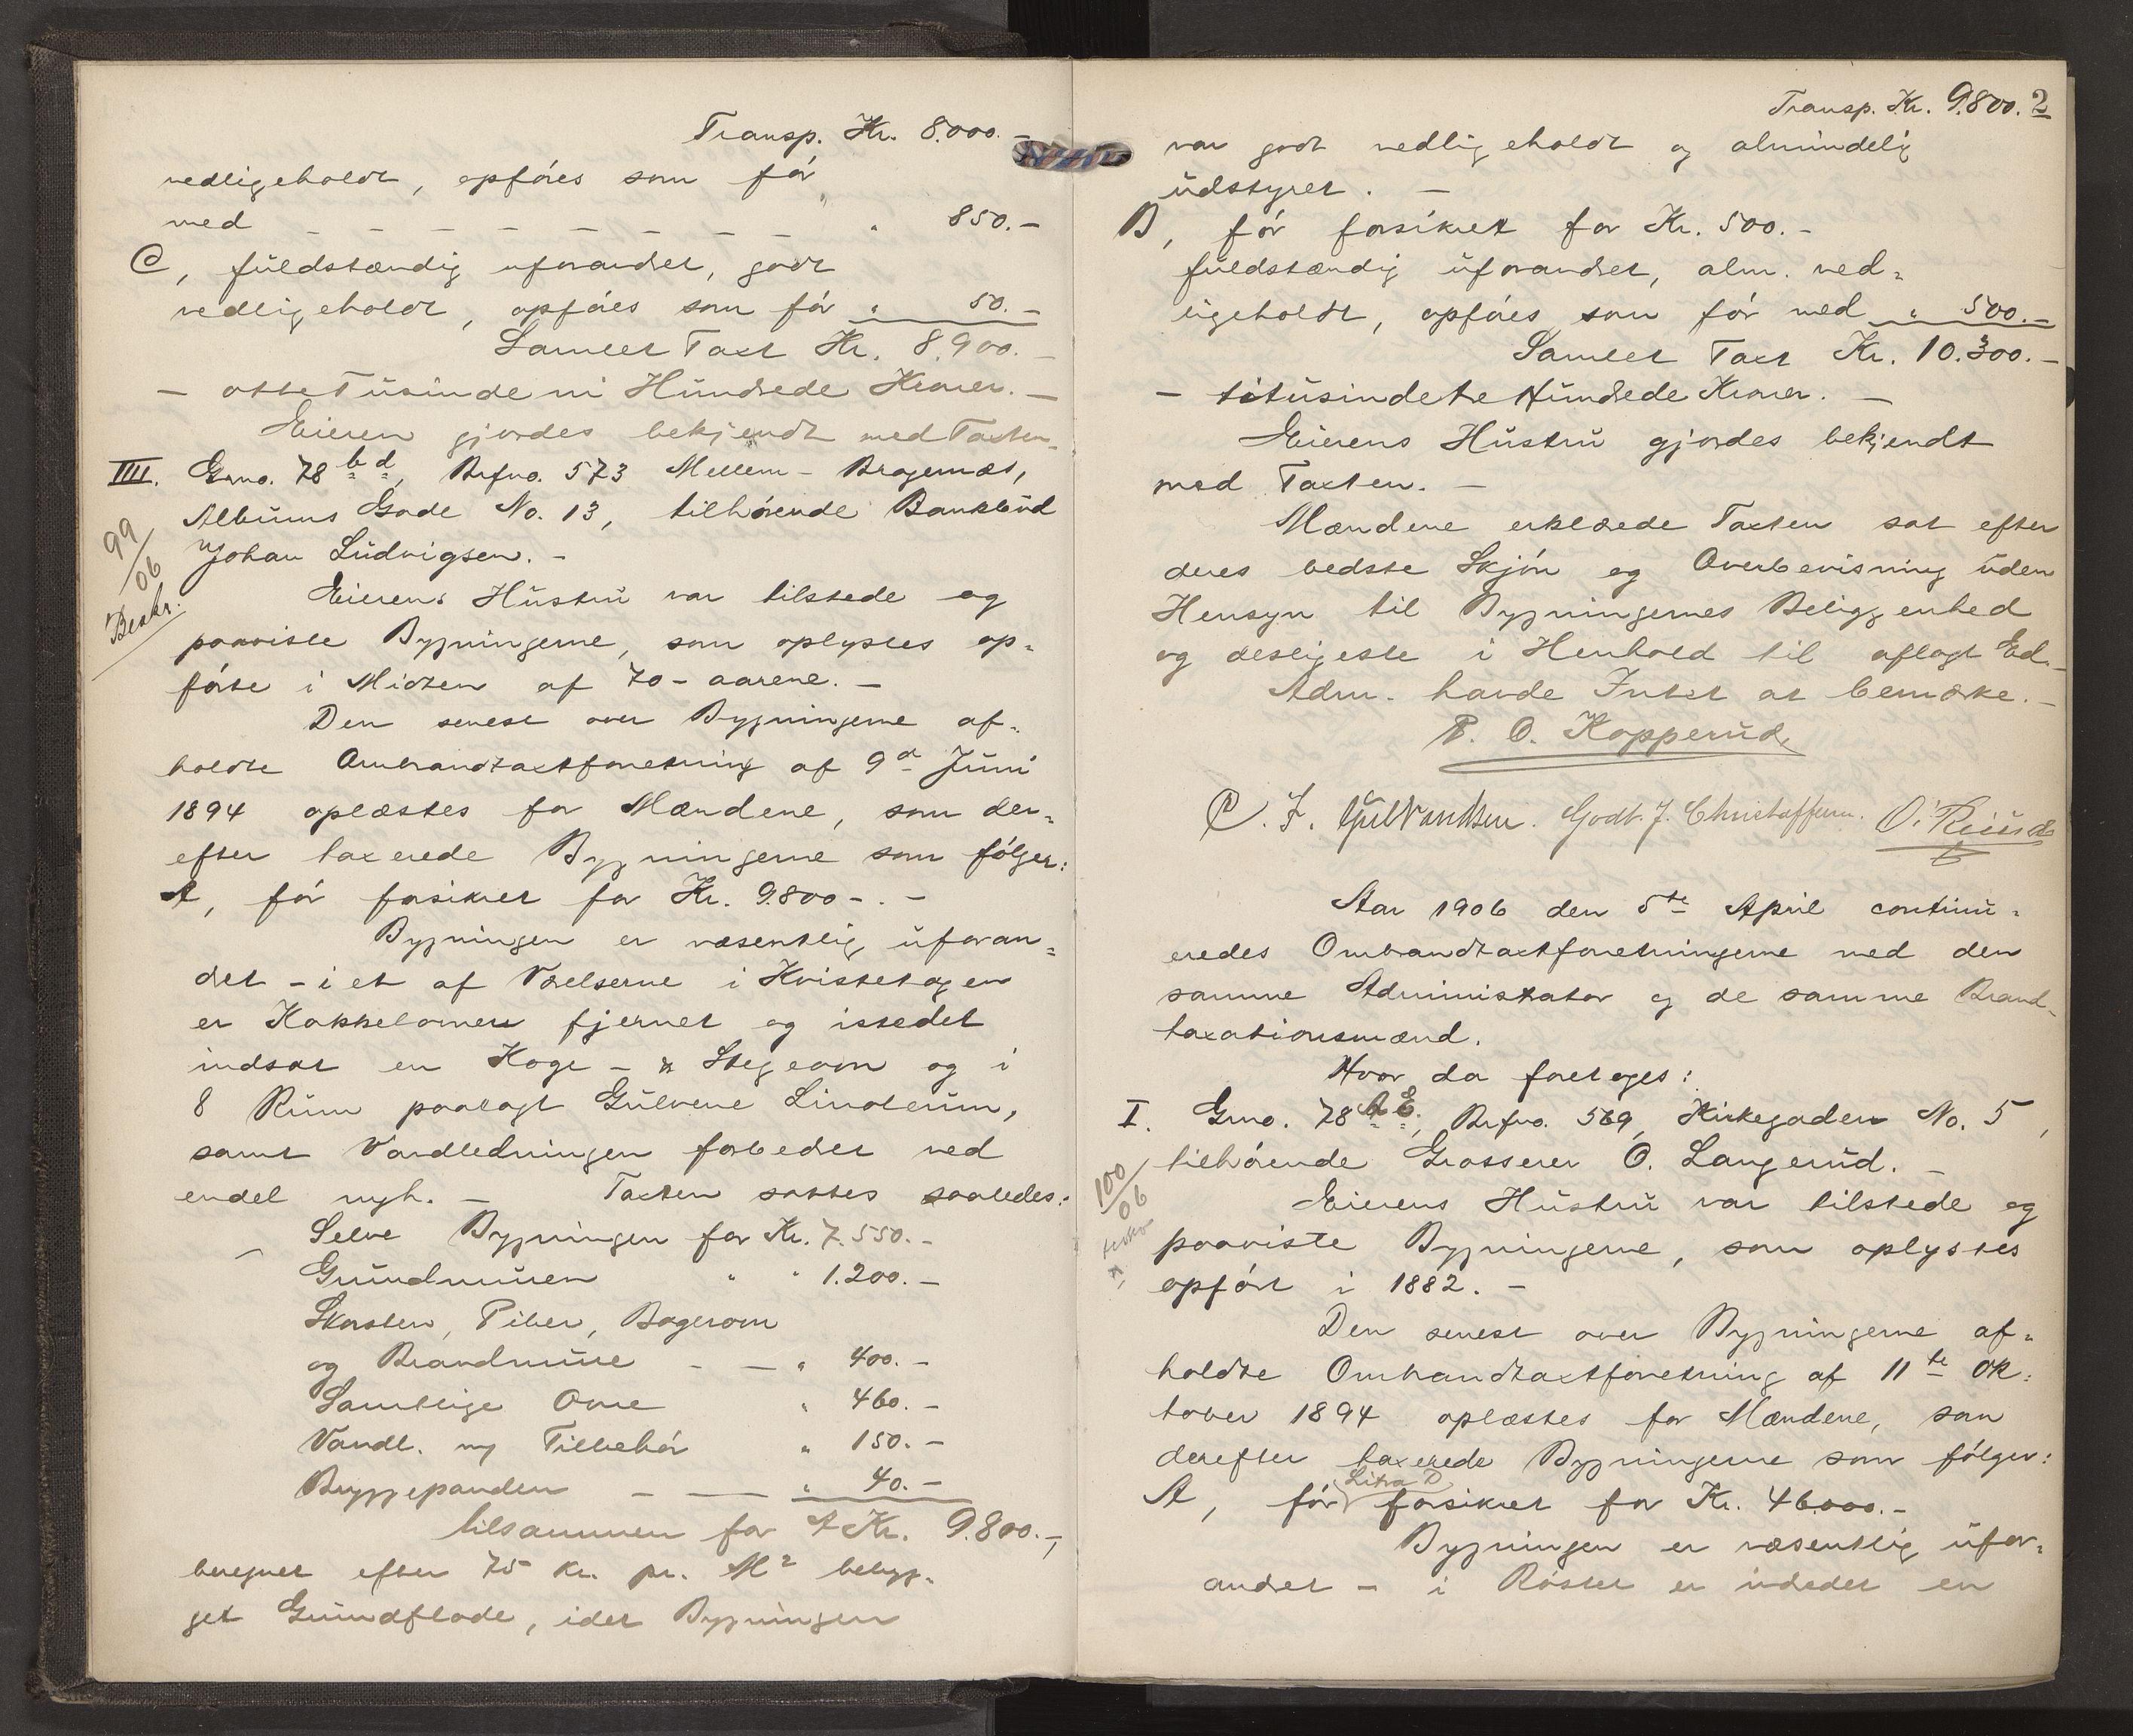 Transp. Kr. 8.000.-
vedligeholdt, opføres som før
med - - - - - - - " 850.-
C, fuldstændig uforandret, godt
vedligeholdt, opføres som før " 50.-
Samlet Taxt Kr. 8.900.-
- otte Tusinde ni Hundrede Kroner. -
Eieren gjordes bekjendt med Taxten.
IIII. Grno. 78 b d, Brfno. 573 Mellem-Bragernæs,
Albums Gade No. 13, tilhørende Bankbud
Johan Ludvigsen. -
99/06
Beskr.
Eierens Hustru var tilstede og
paaviste Bygningerne, som oplystes op=
førte i Midten af 70-aarene. -
Den senest over Bygningerne af=
holdte Ombrandtaxtforretning af 9d Juni
1894 oplæstes for Mændene, som der=
efter taxerede Bygningerne som følger:
A, før forsikret for Kr. 9.800-.-
Bygningen er væsentlig uforan=
dret - i et af Værelserne i Kvistetagen
er Kakkelovnen fjernet og istedet
indsat en Koge- & Stegeovn og i
8 Rum paalagt Gulvene Linoleum,
samt Vandledningen forbedret ved
endel nyt. - Taxten sattes saaledes:
Selve Bygningen for Kr. 7.550.-
Grundmuren " " 1.200.-
Skorsten, Piber, Bagerovn
og Brandmure - - " 400.-
Samtlige Ovne " 460.-
Vandl. m/ Tilbehør " 150.-
Bryggepanden - - " 40.-
tilsammen for A Kr. 9.800.-,
beregnet efter 75 kr. pr. M² bebyg=
get Grundflade, idet Bygningen
Transp. Kr. 9.800. 2
var godt vedligeholdt og almindelig
udstyret. -
B, før forsikret for Kr. 500.-
fuldstændig uforandret, alm. ved=
ligeholdt, opføres som før med " 500.-
Samlet Taxt Kr. 10.300.-
- titusindetre Hundrede Kroner. -
Eierens Hustru gjordes bekjendt
med Taxten. -
Mændene erklærede Taxten sat efter
deres bedste Skjøn og Overbevisning uden
Hensyn til Bygningernes Beliggenhed
og desligeste i Henhold til aflagt Ed.-
Adm. havde Intet at bemærke.-
P. O. Kopperud
C. F. Godt. J. Christoffersen. O. Ruud
Aar 1906 den 5te April continu=
eredes Ombrandtaxtforretningerne med den
samme Administrator og de samme Brand-
taxationsmænd.
Hvor da foretoges:
I. Grno. 78 A E, Brfno. 569, Kirkegaden No. 5,
tilhørende Grosserer O. Langerud. -
100/06
Eierens Hustru var tilstede og
paaviste Bygningerne, som oplystes
opført i 1882. -
Den senest over Bygningerne af=
holdte Ombrandtaxtforretning af 11te Ok=
tober 1894 oplæstes for Mændene, som
derefter taxerede Bygningerne som følger:
A, før Litra D forsikret for Kr. 46.000.-
Bygningen er væsentlig ufor=
andret - i Røstet er indredet en